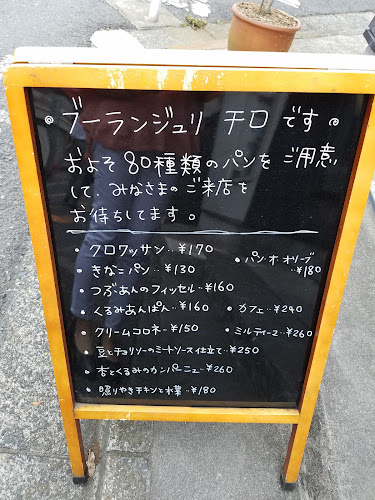 ◎ ブーランジュリ チロ です ◎
およそ80種類のパンを ご用意
して、みなさまのご来店を
お待ちしてます。
• クロワッサン‥¥170
• きなこパン‥¥130
• つぶあんのフィッセル‥¥160
• くるみあんぱん‥¥160
• クリームコロネ‥¥150
• 豆とチョリソーのミートソース仕立て‥¥250
• 杏とくるみのカンパーニュ‥¥260
• 照りやきチキンと水菜‥¥180
• パン オ オリーブ
‥¥180
• カフェ‥¥240
• ミルティーユ‥¥260